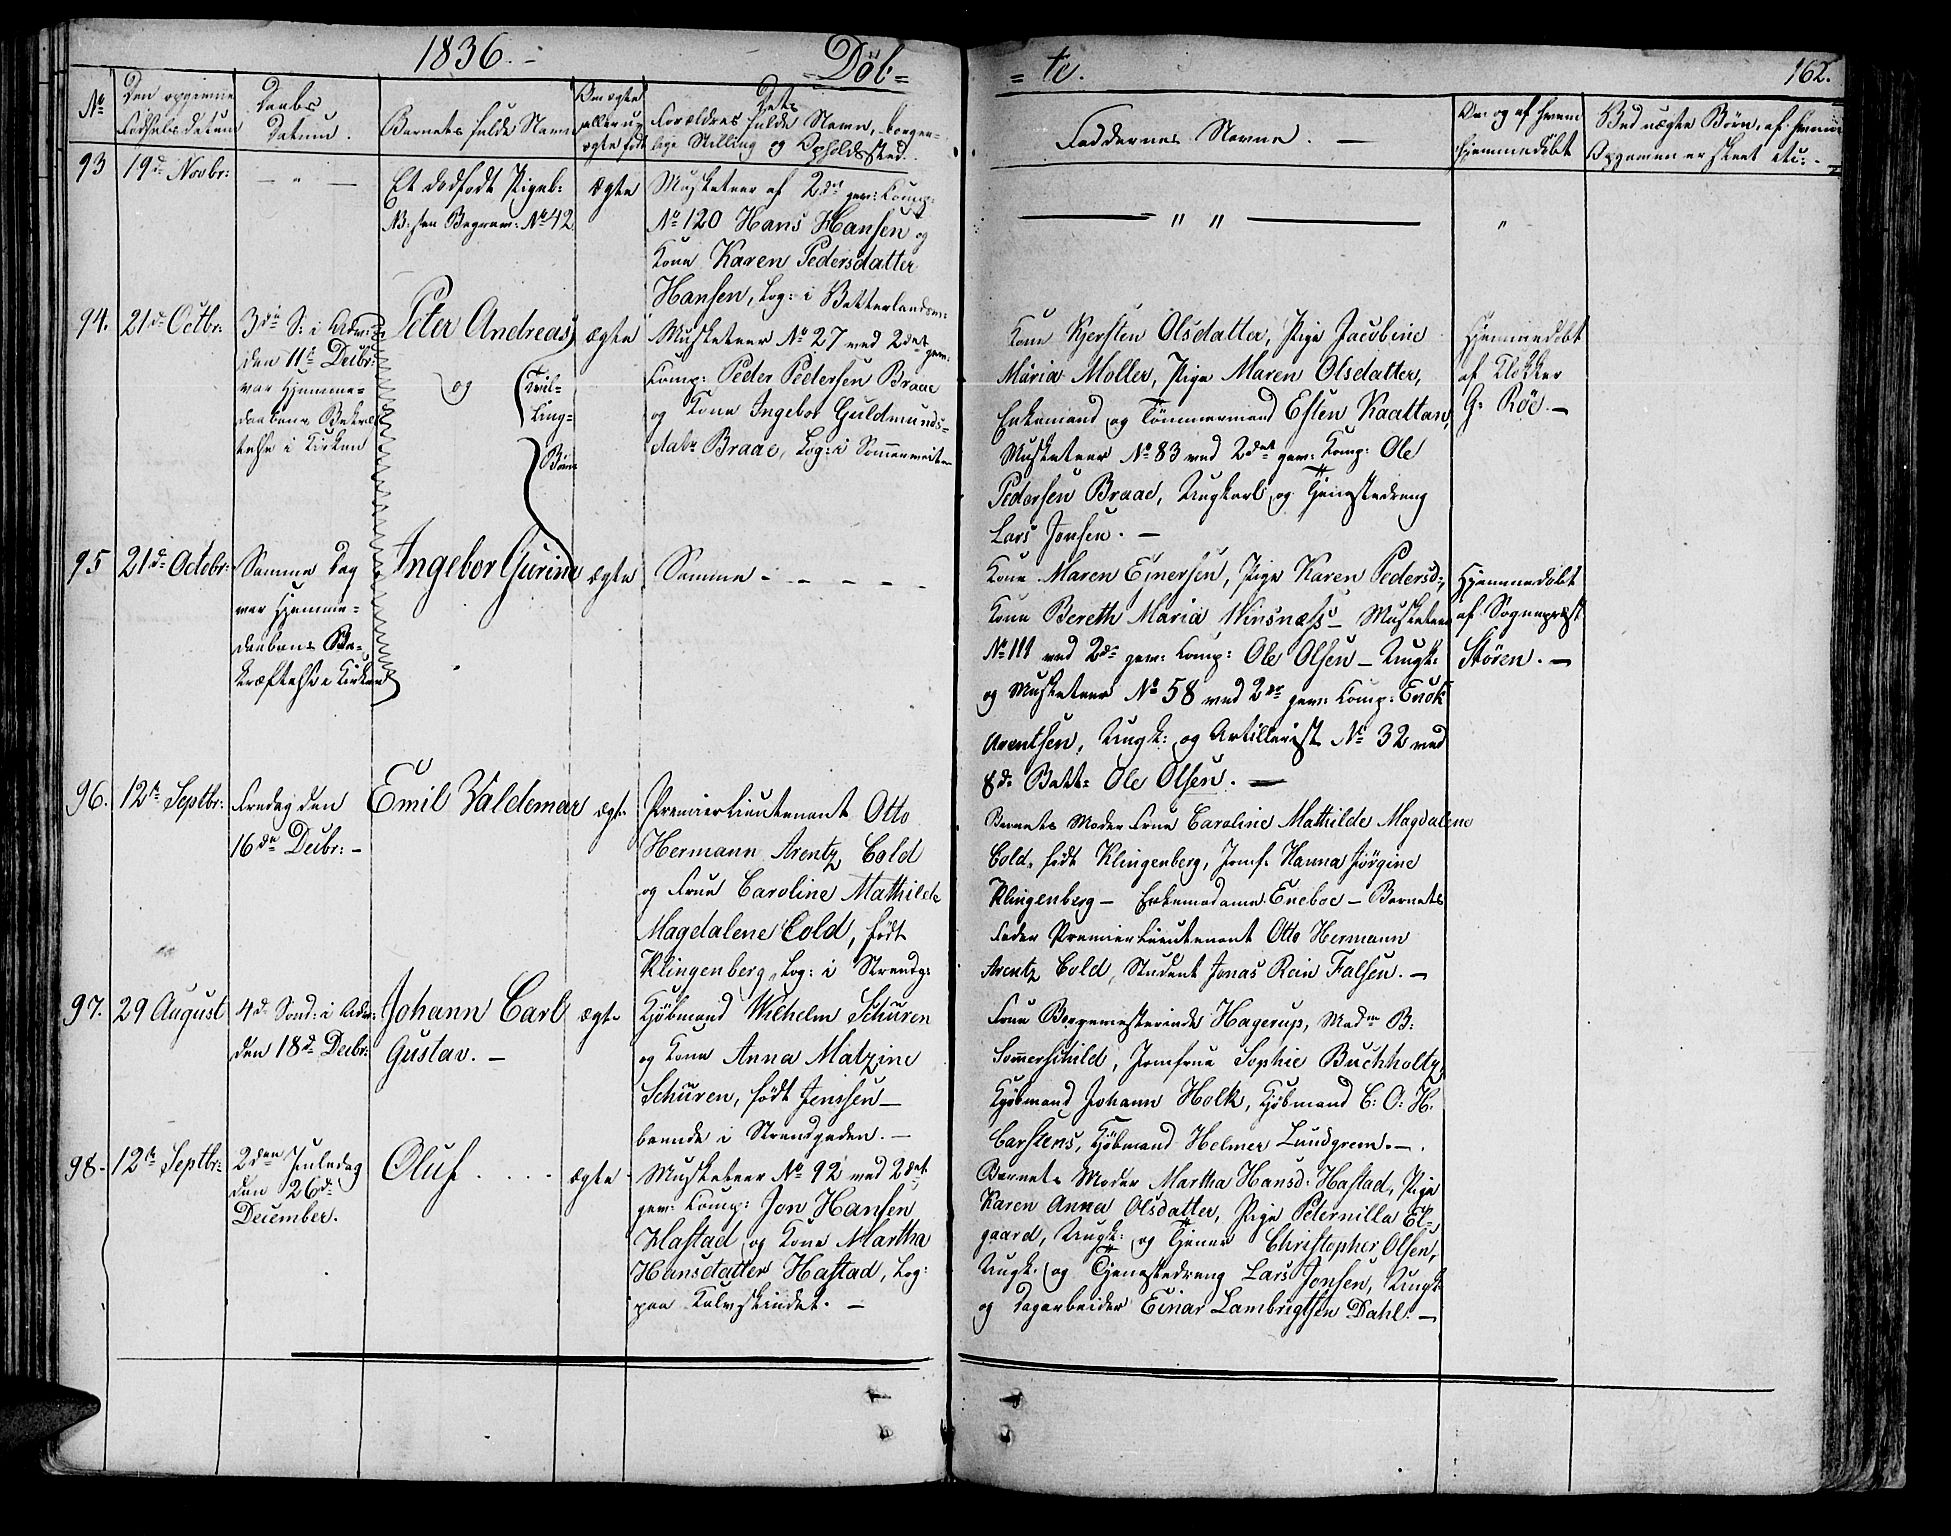 1836.
Döb=
= te.
162.
No
Den opgivne
Fødselsdatum
Daabs
Datum.
Barnets fulde Navn
Om ægte
eller u-
ægte født
Dets
Forældres fulde Navn, borger-
lige Stilling og Opholdssted.
Faddernes Navne. —
Om og af hvem
hjemmedöbt
Ved uægte Börn, af hvem
Angivelsen er skeet etc: -
93
19de Novbr:
— " —
Et dødfødt Pigeb:
NB: see Begravn: No 42
ægte
Musketeer af 2det gev: Comp:
No 120 Hans Hansen og
Kone Karen Pedersdatter
Hansen, Log: i Vatterlandsv:
— " " —
"
94.
21de Octbr:
3die S: i Adv:
den 11te Decbr:
var Hjemme-
daabens Bekræf
telse i Kirken
Peter Andreas
og
Tvil-
ling-
Börn
ægte
Musketeer No 27 ved 2det gev:
Comp: Peder Pedersen Braae
og Kone Ingebor Guldmunds-
datr Braae, Log: i Sommerveiten
Kone Kjersten Olsdatter, Pige Jacobine
Maria Moller, Pige Maren Olsdatter,
Enkemand og Tömmermand Esten Kaattan,
Musketeer No 83 ved 2det gev: Komp: Ole
Pedersen Braae, Ungkarl og Tjenestedreng
Lars Jonsen. —
Hjemmedöbt
af Klokker
G: Röe. —
95
21de Octobr:
Samme Dag
var Hjemme-
daabens Be-
kræftelse i Kirken
Ingebor Gurine
ægte
Samme - - - - -
Kone Maren Einersen, Pige Karen Pedersd:,
Kone Bereth Maria Winsnæss - Musketeer
No 111 ved 2det gev: Comp: Ole Olsen - Ungk:
og Musketeer No 58 ved 2det gev: Comp: Enok
Arentsen, Ungk: og Artillerist No 32 ved
8de Batt: Ole Olsen. —
Hjemmedöbt
af Sognepræst
Stören. —
96.
12te Septbr:
Fredag den
16de Decbr: -
Emil Valdemar
ægte
Premierlieutenant Otto
Hermann Arentz Cold
og Frue Caroline Mathilde
Magdalene Cold, født
Klingenberg, Log: i Strandg:
Barnets Moder Frue Caroline Mathilde Magdalene
Cold, født Klingenberg, Jomf: Hanna Jörgine
Klingenberg - Enkemadame Eneboe - Barnets
Fader Premierlieutenant Otto Hermann
Arentz Cold, Student Jonas Rein Falsen. —
97.
29 August
4de Sönd: i Adv:
den 18de Decbr:
Johann Carl
Gustav. —
ægte
Kjöbmand Wilhelm Schuren
og Kone Anna Matzine
Schuren, født Jenssen -
boende i Strandgaden. —
Frue Borgemesterinde Hagerup, Madm B:
Sommerschild, Jomfrue Sophie Buchholtz,
Kjöbmand Johann Holk, Kjöbmand C: O: H:
Carstens, Kjöbmand Helmer Lundgrem. —
98.
12te Septbr:
2den Juledag
den 26de
December.
Oluf . . . .
ægte
Musketeer No 92 ved 2det
gev: Comp: Jon Hansen
Hastad og Kone Martha
Hansdatter Hastad, Log:
paa Kalvskindet. —
Barnets Moder Martha Hansd: Hastad, Pige
Karen Anna Olsdatter, Pige Peternilla El-
gaard, Ungk: og Tjener Christopher Olsen,
Ungk: og Tjenestedreng Lars Jonsen, Ungk:
og Dagarbeider Einar Lambrigtsen Dahl. —